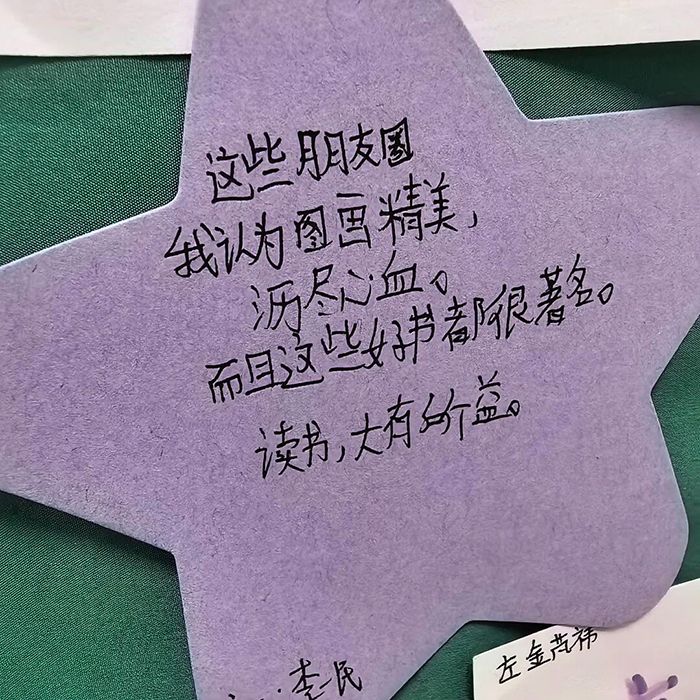 这些朋友圈
我认为图画精美，
沥尽心血。
而且这些好书都很著名。
读书，大有的益。
李一民
左金芮祎